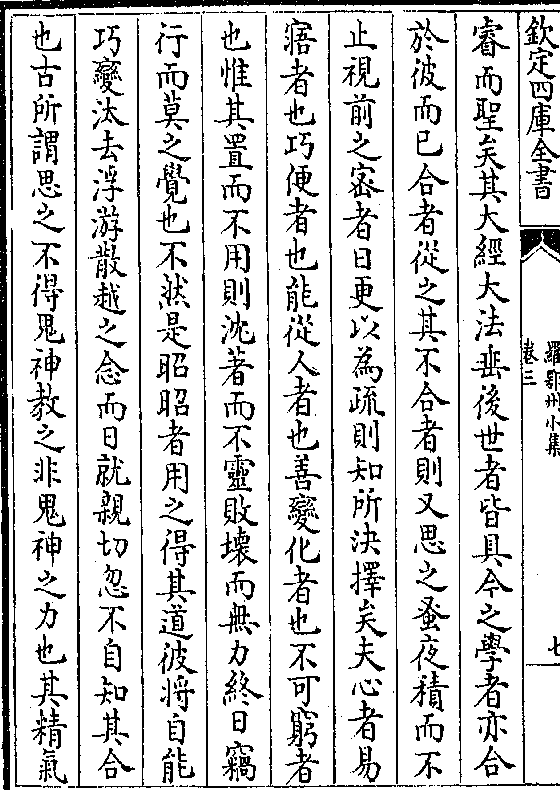 欽定四庫全書
羅鄂州小集
卷三
七
睿而聖矣其大經大法垂後世者皆具今之學者亦合
於彼而已合者從之其不合者則又思之蚤夜積而不
止視前之密者日更以為疏則知所決擇矣夫心者易
寤者也巧便者也能從人者也善變化者也不可窮者
也惟其置而不用則沈著而不靈敗壊而無力終日竊
行而莫之覺也不然是昭昭者用之得其道彼将自能
巧變汰去浮游散越之念而日就親切忽不自知其合
也古所謂思之不得鬼神教之非鬼神之力也其精氣